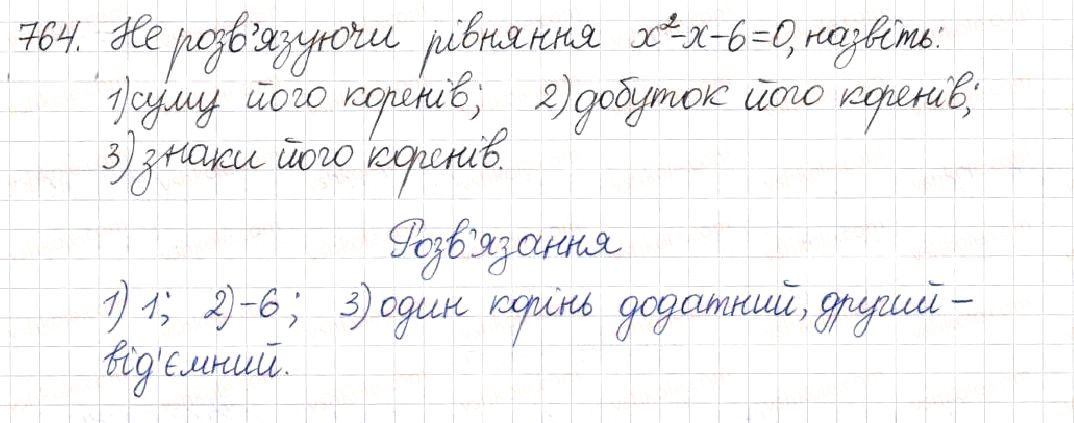 764. Не розв'язуючи рівняння x²-x-6=0, назвіть:
1) суму його коренів; 2) добуток його коренів;
3) знаки його коренів.
Розв'язання
1) 1; 2) -6; 3) один корінь додатний, другий –
від'ємний.